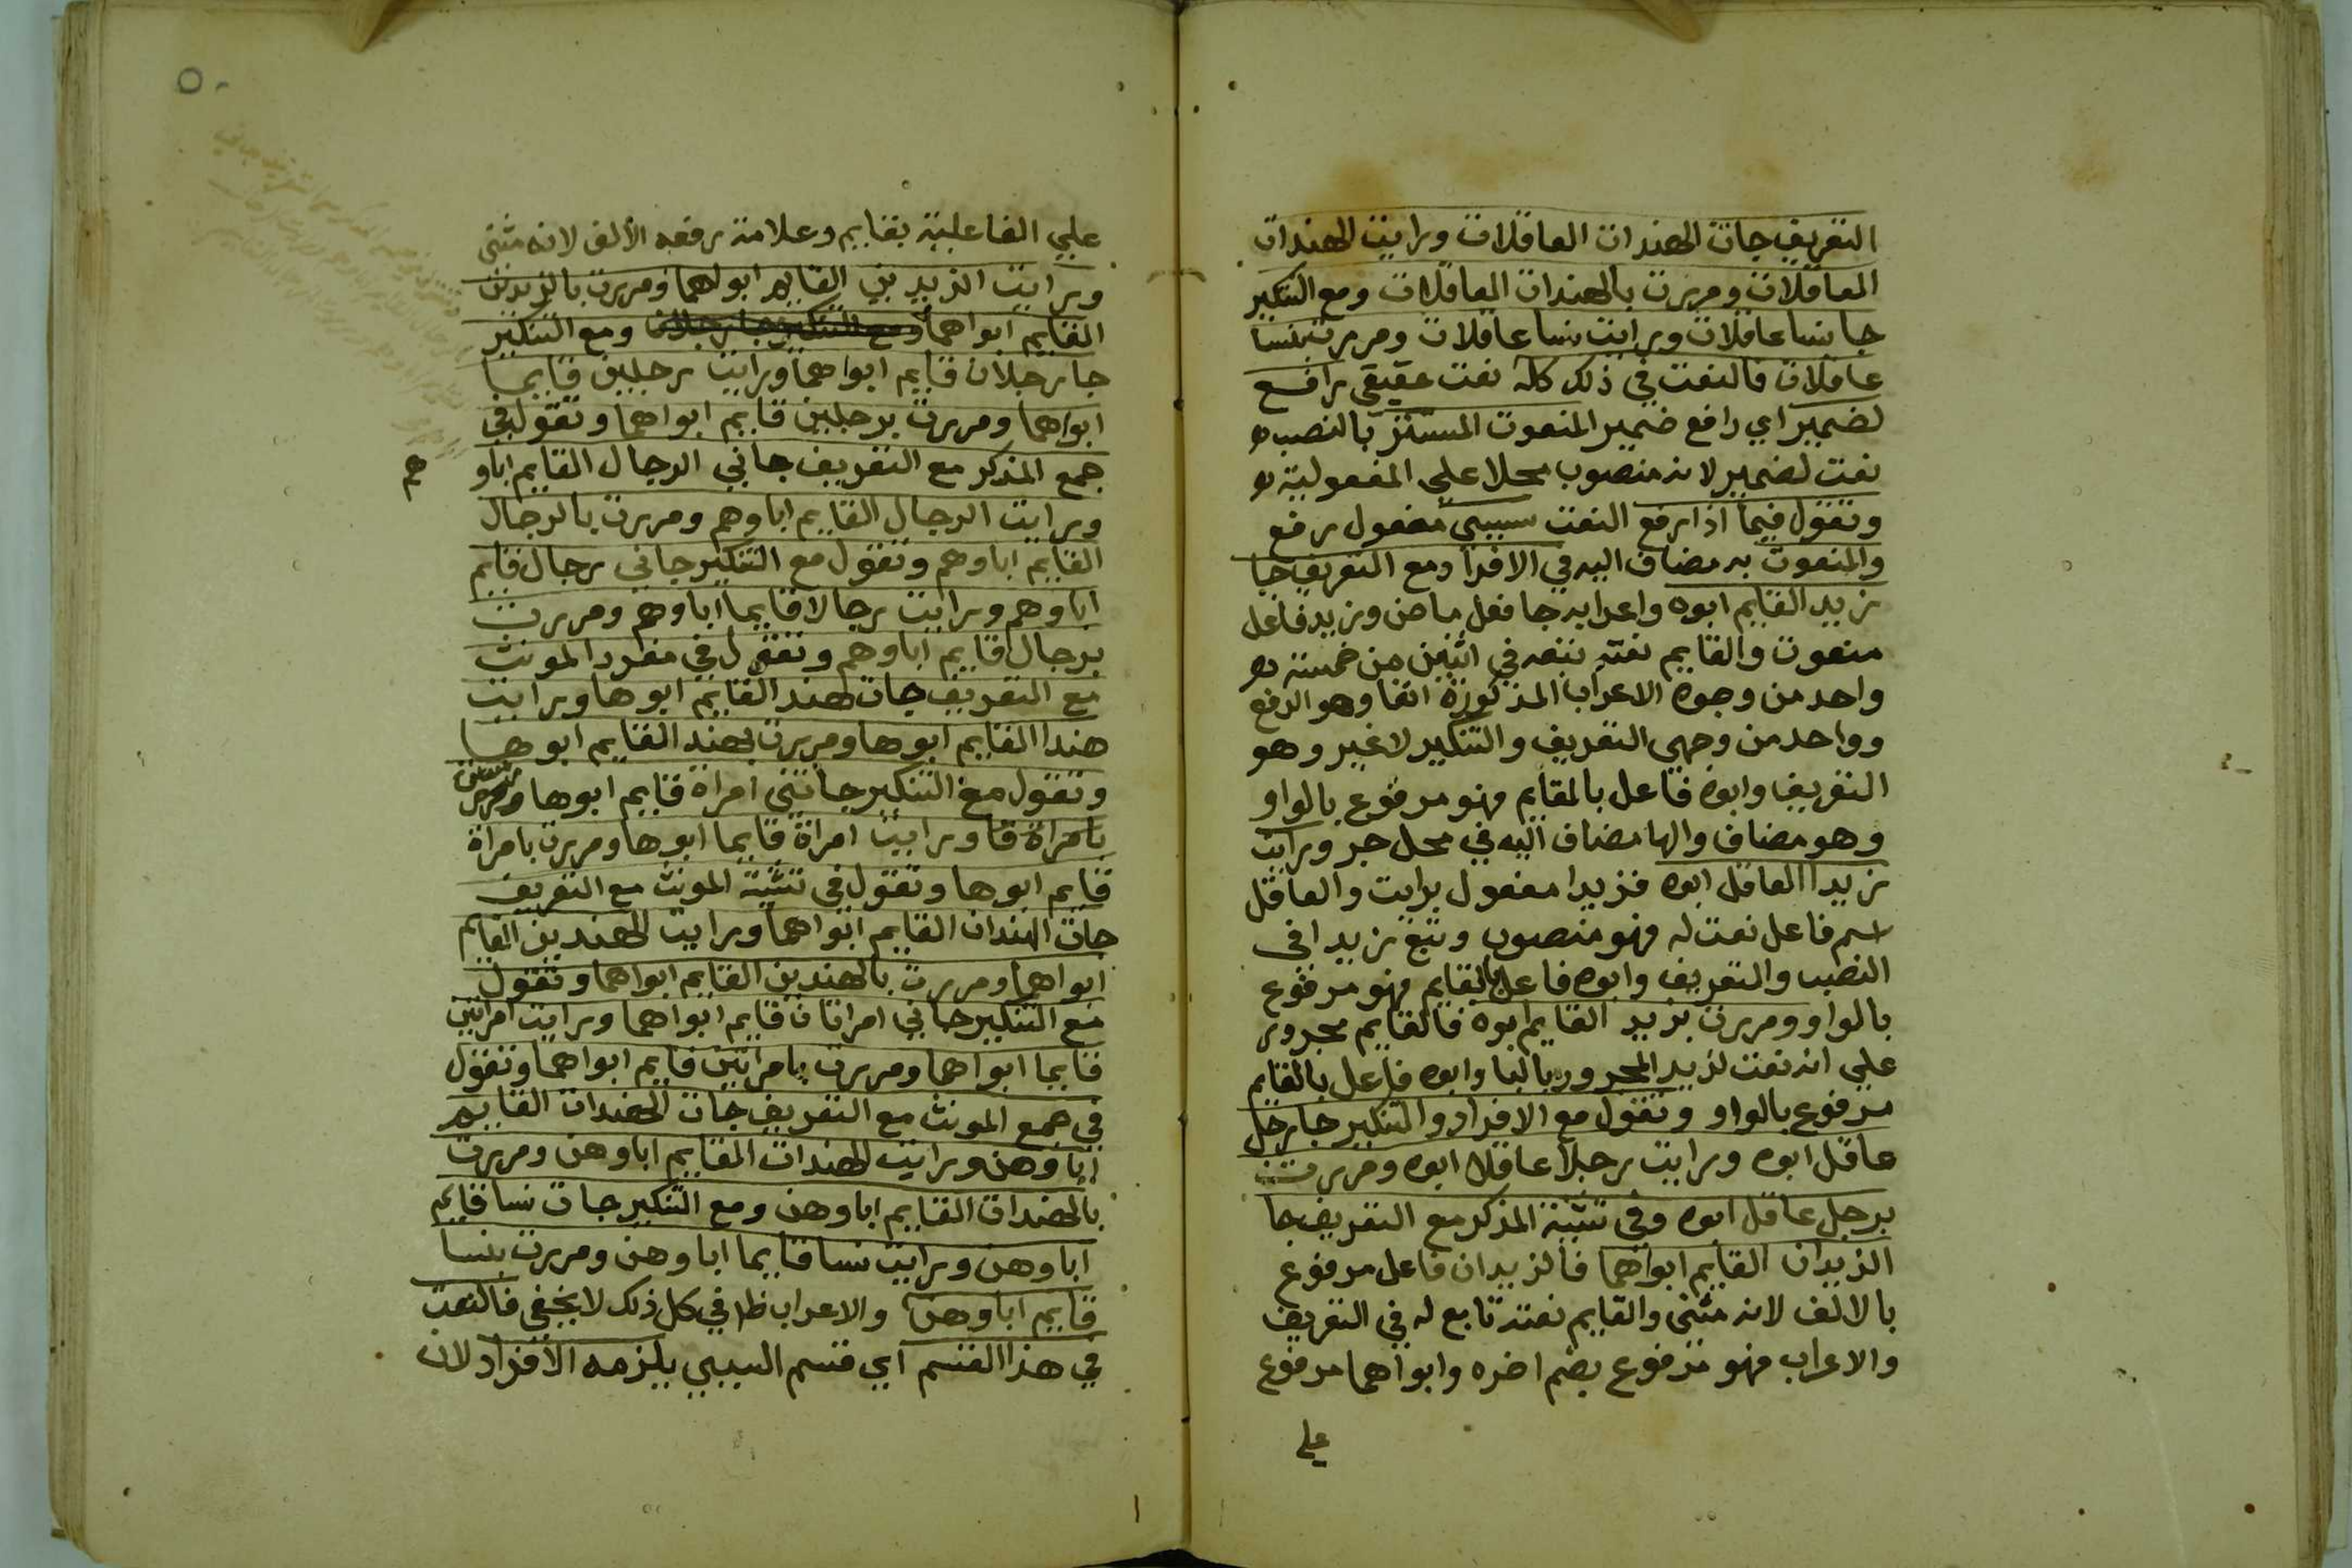 التعريف جات الهندات العاقلات ورايت الهندات
العاقلات ومررت بالهندات العاقلات ومع التنكير
جا نسا عاقلات ورايت نسا عاقلات ومررت بنسا
عاقلات فالنعت في ذلك كله نعت حقيقي رافع
لضمير اي رافع ضمير المنعوت المستتر بالنصب
نعت لضمير لانه منصوب محلا على المفعولية
وتقول فيما اذا رفع النعت سببي مفعول رفع
والمنعوت به مضاف اليه في الافراد ومع التعريف جا
زيد القايم ابوه واعرابه جا فعل ماض وزيد فاعل
منعوت والقايم نعته تبعه في اثنين من خمسة
واحد من وجوه الاعراب المذكورة انفا وهو الرفع
وواحد من وجهي التعريف والتنكير لا غير وهو
التعريف وابوه فاعل بالقايم فهو مرفوع بالواو
وهو مضاف والها مضاف اليه في محل جر ورايت
زيدا العاقل ابوه فزيدا مفعول برايت والعاقل
اسم فاعل نعت له فهو منصوب وتبع زيدا في
النصب والتعريف وابوه فاعل بالقايم فهو مرفوع
بالواو ومررت بزيد القايم ابوه فالقايم مجرور
على انه نعت لزيد المجرور بالبا وابوه فاعل بالقايم
مرفوع بالواو وتقول مع الافراد والتنكير جا رجل
عاقل ابوه ورايت رجلا عاقلا ابوه ومررت
برجل عاقل ابوه وفي تثنية المذكر مع التعريف جا
الزيدان القايم ابواهما فالزيدان فاعل مرفوع
بالالف لانه مثنى والقايم نعته تابع له في التعريف
والاعراب فهو مرفوع بضم اخره وابواهما مرفوع
على
٥٠
علي الفاعلية بقايم وعلامة رفعه الألف لانه مثنى
ورايت الزيدين القايم ابواهما ومررت بالزيدين
القايم ابواهما ومع التنكير جا رجلان ومع التنكير
جا رجلان قايم ابواهما ورايت رجلين قايما
ابواهما ومررت برجلين قايم ابواهما وتقول في
جمع المذكر مع التعريف جاني الرجال القايم اباو
هم
ورايت الرجال القايم اباوهم ومررت بالرجال
القايم اباوهم وتقول مع التنكير جاني رجال قايم
اباوهم ورايت رجالا قايما اباوهم ومررت
برجال قايم اباوهم وتقول في مفرد المونث
مع التعريف جات هند القايم ابوها ورايت
هندا القايم ابوها ومررت بهند القايم ابوها
وتقول مع التنكير جاتني امراة قايم ابوها ومررت
بامراة قا ورايت امراة قايما ابوها ومررت بامراة
قايم ابوها وتقول في تثنية المونث مع التعريف
جات الهندان القايم ابواهما ورايت الهندين القايم
ابواهما ومررت بالهندين القايم ابواهما وتقول
مع التنكير جاني امراتان قايم ابواهما ورايت امراتين
قايما ابواهما ومررت بامراتين قايم ابواهما وتقول
في جمع المونث مع التعريف جات الهندات القايم
اباوهن ورايت الهندات القايم اباوهن ومررت
بالهندات القايم اباوهن ومع التنكير جات نسا قايم
اباوهن ورايت نسا قايما اباوهن ومررت بنسا
قايم اباوهن والاعراب ظا في كل ذلك لا يخفى فالنعت
في هذا القسم اي قسم السببي يلزمه الافراد لان